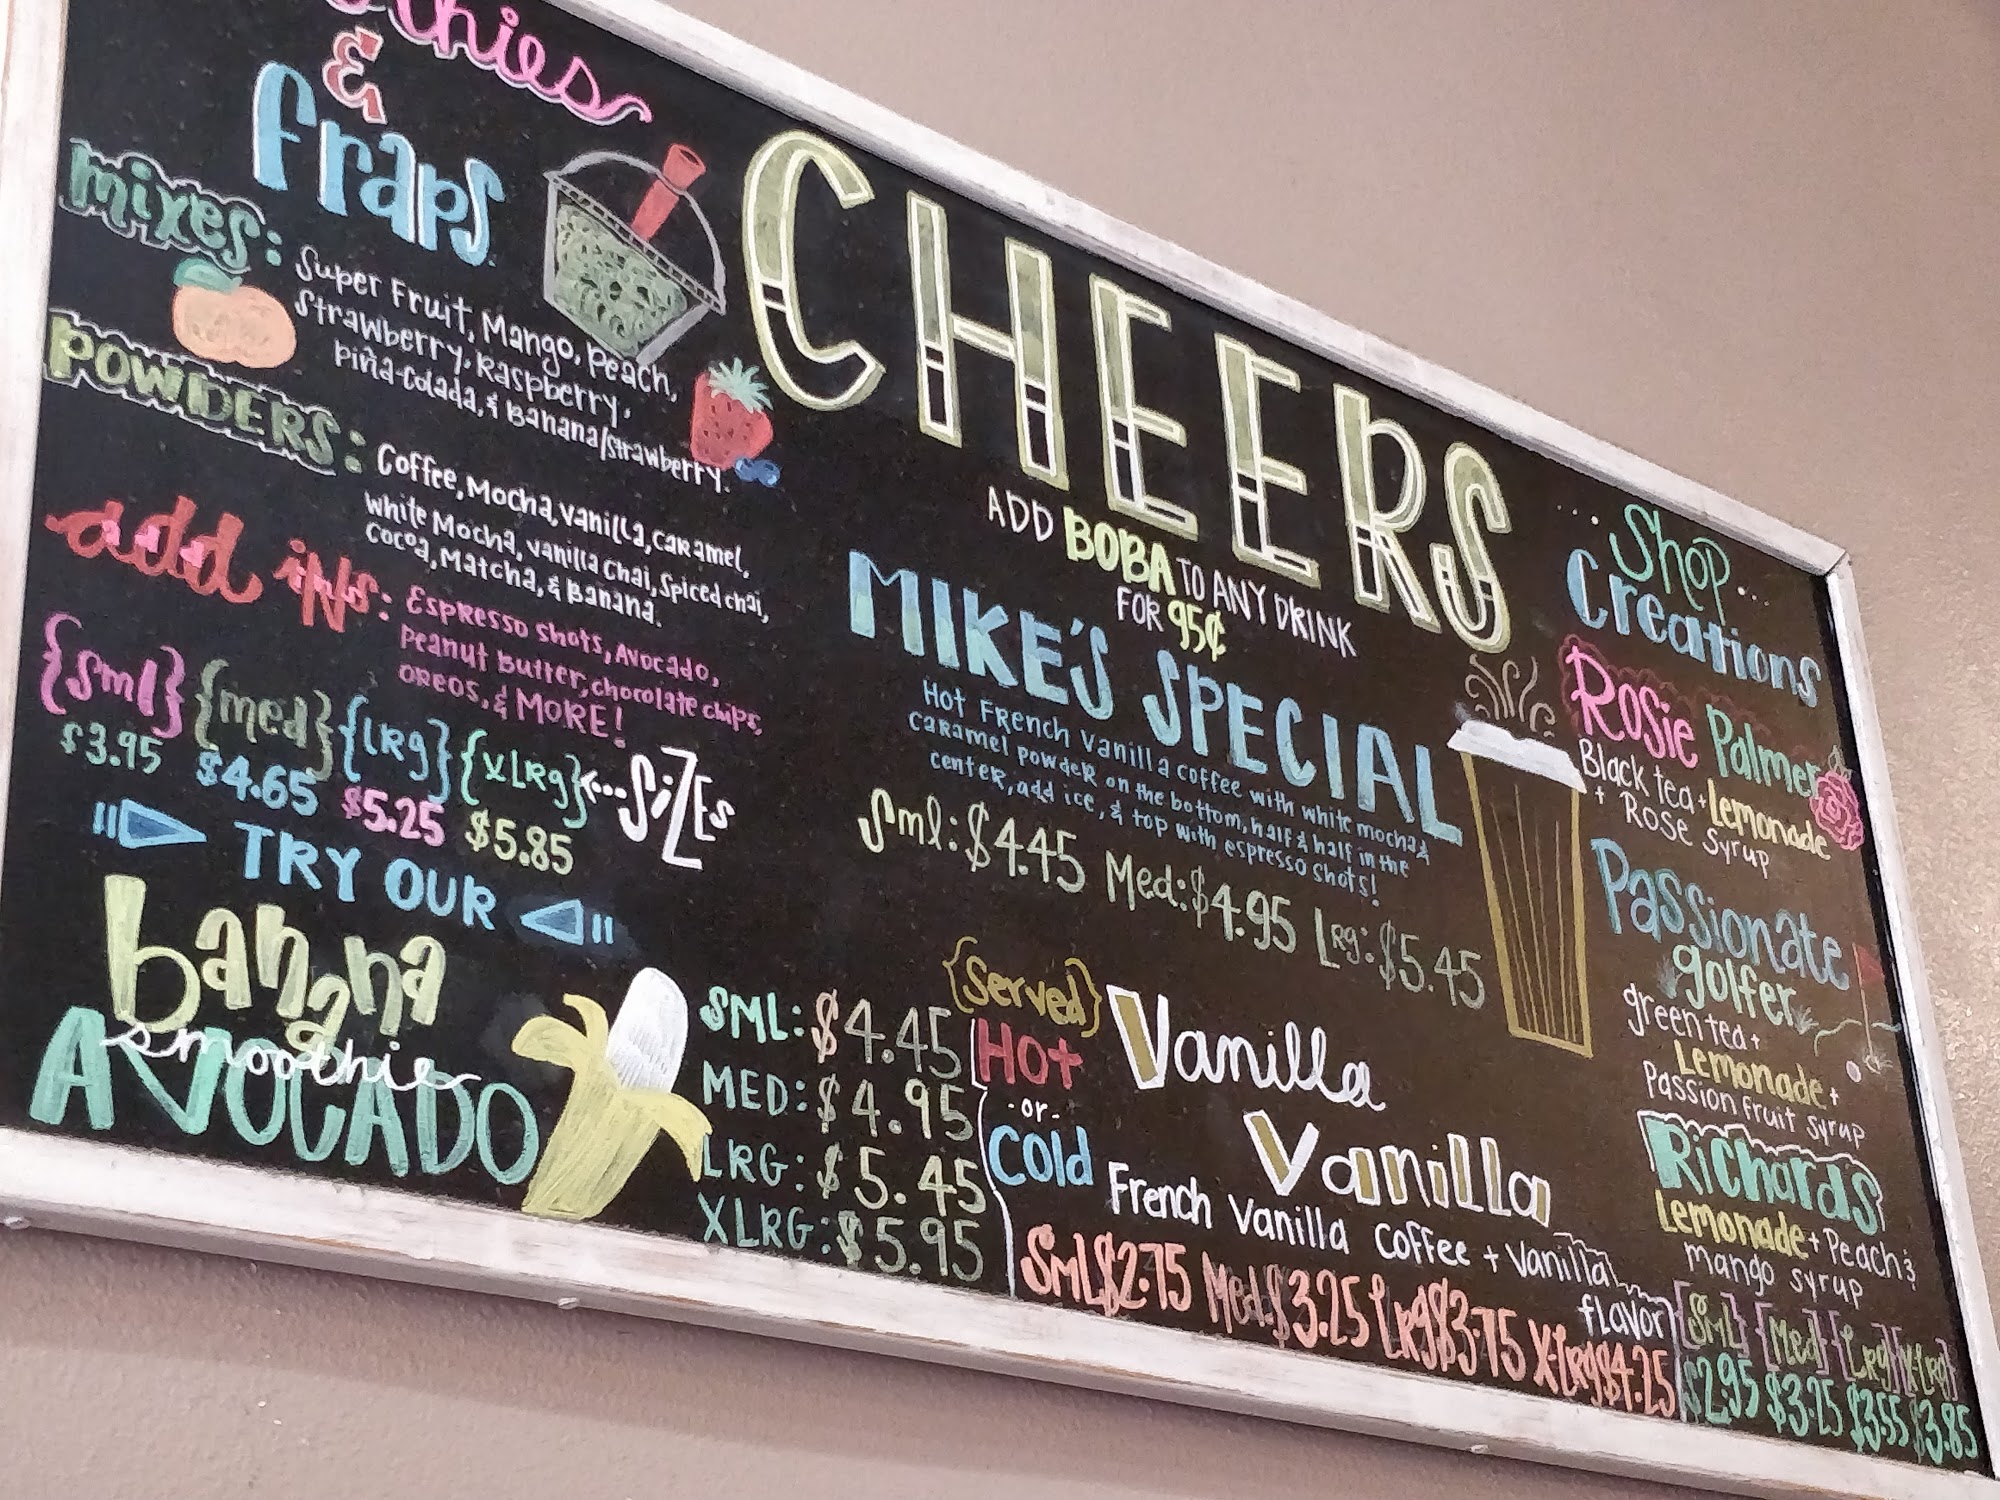 & 
fraps
mixes:
Super Fruit, Mango, Peach,
Strawberry, Raspberry,
Piña-Colada, & Banana/Strawberry.
POWDERS:
Coffee, Mocha, Vanilla, Caramel,
White Mocha, Vanilla Chai, Spiced chai,
Cocoa, Matcha, & Banana.
add ins:
Espresso shots, Avocado,
Peanut Butter, chocolate chips,
OREOS, & MORE!
{sml} {med} {LRg} {XLRg} <--- SIZEs
$3.95 $4.65 $5.25 $5.85
TRY OUR
banana
smoothie
AVOCADO
SML: $4.45
MED: $4.95
LRG: $5.45
XLRG: $5.95
CHEERS
ADD BOBA TO ANY DRINK
FOR 95¢
MIKE'S SPECIAL
Hot French Vanilla coffee with white mocha &
caramel powder on the bottom, half & half in the
center, add ice, & top with espresso shots!
Sml: $4.45 Med: $4.95 Lrg: $5.45
{Served}
Hot
-or-
Cold
Vanilla
Vanilla
French Vanilla Coffee + Vanilla
flavor
Sml $2.75 Med $3.25 Lrg $3.75 X-Lrg $4.25
....Shop...
Creations
Rosie Palmer
Black tea + Lemonade
+ Rose Syrup
Passionate
golfer
green tea +
Lemonade +
Passion fruit syrup
Richards
Lemonade + Peach &
mango syrup
{Sml} {Med} {Lrg} {X-Lrg}
$2.95 $3.25 $3.55 $3.85